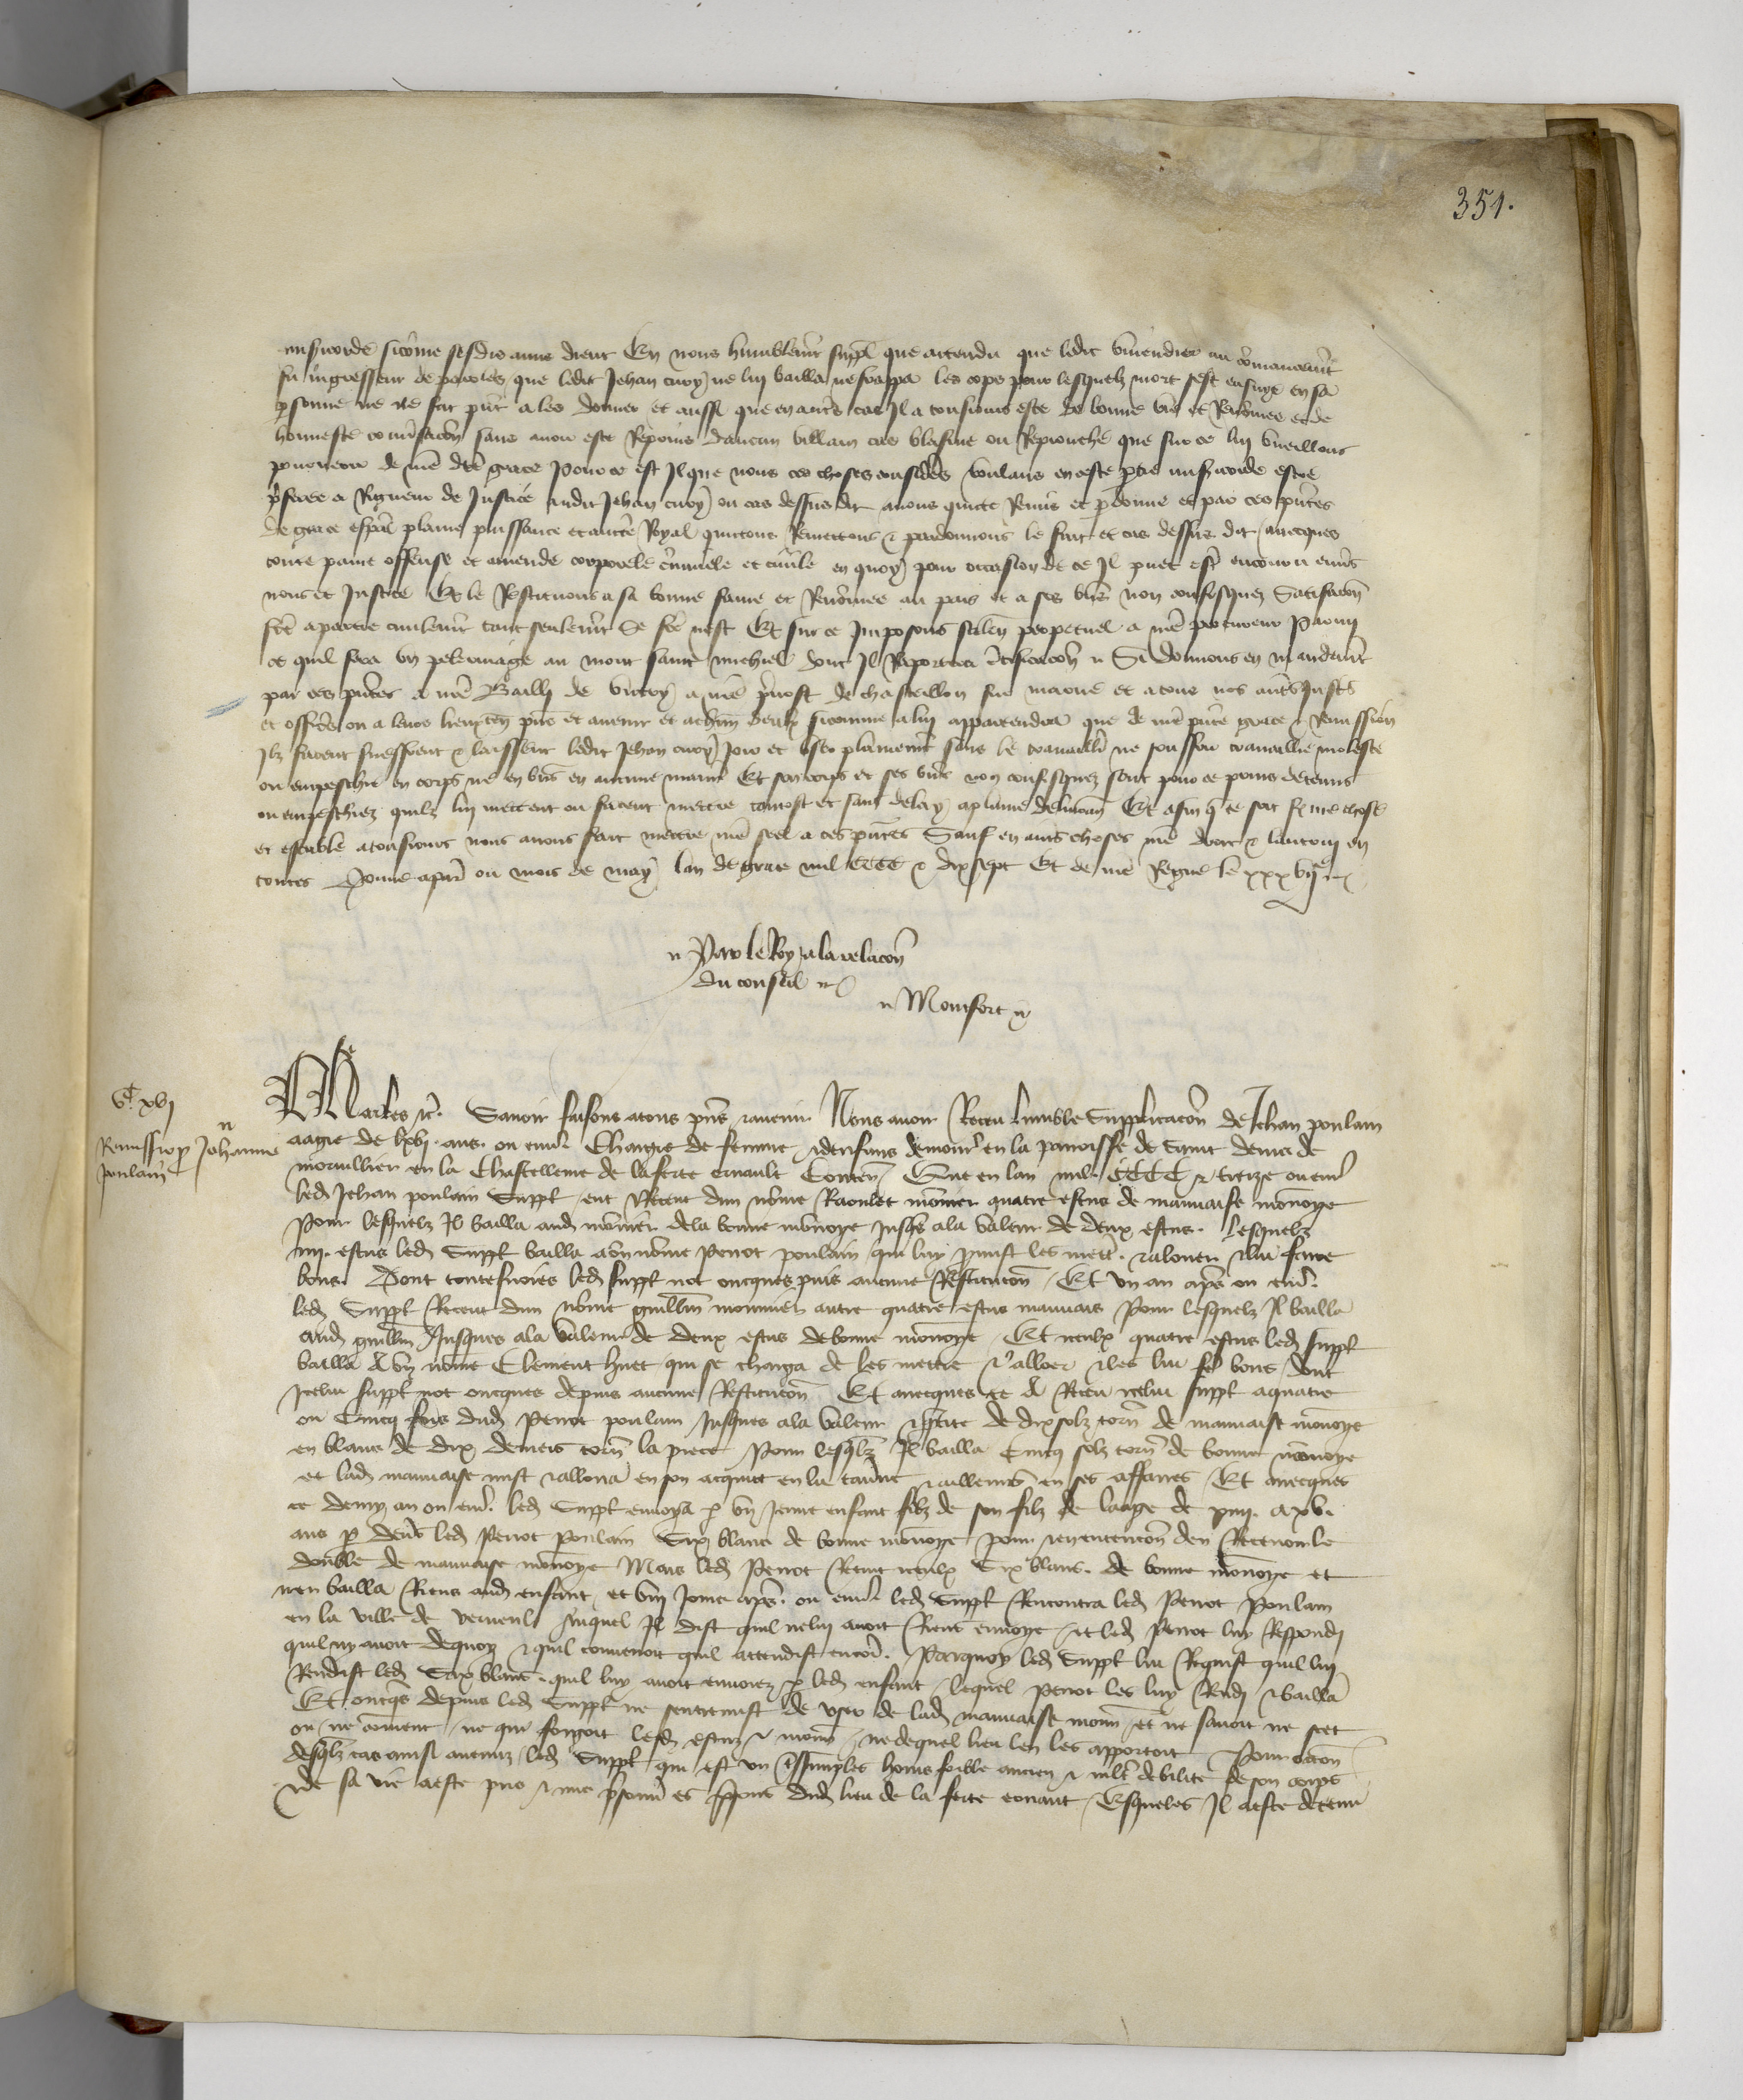 351.
misericorde sicōme sesdis amis dient En nous humblemēt suppl que attendu que ledit vivendier au cōmancemēt
fu ingresseur de paroles que ledit Jehan cuoy ne lui bailla ne frappa les cops pour lesquelz mort sest ensuye en sa
psonne ne ne fut pñt a les donner et aussi que en autrēs cas Il a tousiours este de bonne vie et Renōmee et de
honneste conūsacōn sans avoir este Repris daucun villain cas blasme ou Reprouche que sur ce lui vueillons
pourveoir de nrē dcē grace Pour ce est Il que nous ces choses considēs voulans en ceste ptie misericorde estre
pferee a Rigueur de Justice audit Jehan cuoy ou cas dessus dit avons quicte Remis et pdonne et par ces pñtes
de grace espāl plaine puissance et auctē Royal quictons Remettons & pardonnons le fait et cas dessus dit avecques
toute paine offense et amende corporele cīminele et civile en quoy pour occasion de ce Il puet estr̄ encouru envs
nous et Justice Et le Restituons a sa bonne fame et Renōmee au pais et a ses biēs non confisquez Satisfacōn
fcē a partie civilemēt tant seulemēt se fcē nest Et sur ce Imposons silen̄ perpetuel a nrē procureur Parmi
ce quil fera un pelerinage au mont saint michiel dont Il Raportera c̄tificacōn Si donnons en mandemt
par ces pñtes a nrē Bailli de vittry a nrē pvost de chasteillon sur marne et a tous nos autēs Justic̄
et officiēs ou a leurs lieuxten̄ pñs et avenir et a chūn deulx sicomme a lui appartendra que de nrē pñte grace & Remission
Ilz facent sueffrent & laissent ledit Jehan cuoy Joir et user plainemēt sans le travaillier ne souffrir travaillie moleste
ou empeschie en corps ne en biēs en aucune maniē Et son corps et ses biēs non confisquez sont pour ce prins detenus
ou empeschiez quilz lui mettent ou facent mettre tantost et sanz delay a plaine delivran̄ Et afin q̄ ce soit ferme chose
et estable a tousiours nous avons fait mettre nrē seel a ces pñtes Sauf en autēs choses nrē droit & lautruy en
toutes Donne a paris ou mois de may lan de grace mil cccc & dix sept Et de nrē Regne le xxxvijᵉ
Par le Roy a la relacōn
du conseil
Montfort
vᶜ xvj
Remissio p̱ Johanne
poulain
Charles &c̄. Savoir faisons a tous pñs & avenir Nous avoir Receu lumble Supplicacōn de Jehan poulain
aagie de lxvj. ans. ou envir̄ Chargie de femme & denfans demour̄ en la paroisse de Saint denis de
morvillier en la Chastellenie de la ferte ernault Conten̄ Que en lan mil. CCCC & treize ou env̄
led̄ Jehan poulain Suppl̄ eut Receut dun nōme Raoulet mōnier quatre escus de mauvaise mōnoye
Pour lesquelz Il bailla aud̄ mōnier de la bonne mōnoye Jusq̄s a la valeur de deux escus. Lesquelz
iiij. escus led̄ Suppl̄ bailla a un nōme Perrot poulain qui luy pmist les mettr̄. & alouer & lui faire
bons. Dont toutesvoies led̄ suppl̄ not oncques puis aucune Restitucōn Et un an apres ou env̄.
led̄ Suppl̄ Receut dun nōme guillm̄ mommer autre quatre escus mauvais Pour lesquelz Il bailla
aud̄ guillm̄ Jusques a la valeur de deux escus de bonne mōnoye Et iceulx quatre escus led̄ suppl̄
bailla a un nōme Clement huet qui se charga de les mettre & alloer & les lui fē bons dont
Icelui suppl̄ not oncques depuis aucune Restitucōn Et avecques ce a Receu icelui suppl̄ a quatre
ou Cincq fois dud̄ Perrot poulain Jusques a la valeur de dix solz torn̄ de mauvaise mōnoye
en blans de dix deniers torn̄ la piece Pour lesqlz Il bailla Cincq solz torn̄ de bonne mōnoye
et lad̄ mauvaise mist & alloua en son acquict en la taverne & ailleurs en ses affaires Et avecques
ce demy an ou env̄. led̄ Suppl̄ envoya p̱ un Jeune enfant filz de son filz de laage de xiiij. a xv.
ans p̱ devers led̄ Perrot poulain Six blans de bonne mōnoye pour & en entencōn den Recevoir le
double de mauvaise mōnoye Mais led̄ Perrot Retint iceulx Six blans. de bonne mōnoye et
nen bailla Riens aud̄ enfant et viij Jours apres. ou env̄ led̄ Suppl̄ Rencontra led̄ Perrot Poulain
en la ville de verneul Auquel Il dist quil ne luy avoit Riens envoye et led̄ Perrot luy Respondi
quil ny avoit dequoy & quil convenoit quil attendist encor̄. Parquoy led̄ Suppl̄ lui Requist quil lui
Rendist led̄ Six blans. quil luy avoit envoiez p̱ led̄ enfant lequel Perrot les luy Rendi & bailla
Et oncq̄s depuis led̄ Suppl̄ ne sentremist de user de lad̄ mauvaise monn̄ et ne savoit ne scet
ou ne cōment ne qui forgoit lesd̄ escuz & monn̄ ne dequel lieu len les apportoit Pour occōn
desqlz cas ainsi avenuz led̄ Suppl̄ qui est un simples homs foible ancien & mlt̄ debilite de son corps
& de sa vie a este pris & mis pso͞nn̄ es psons dud̄ lieu de la ferte ernaut Esqueles Il a este detenu